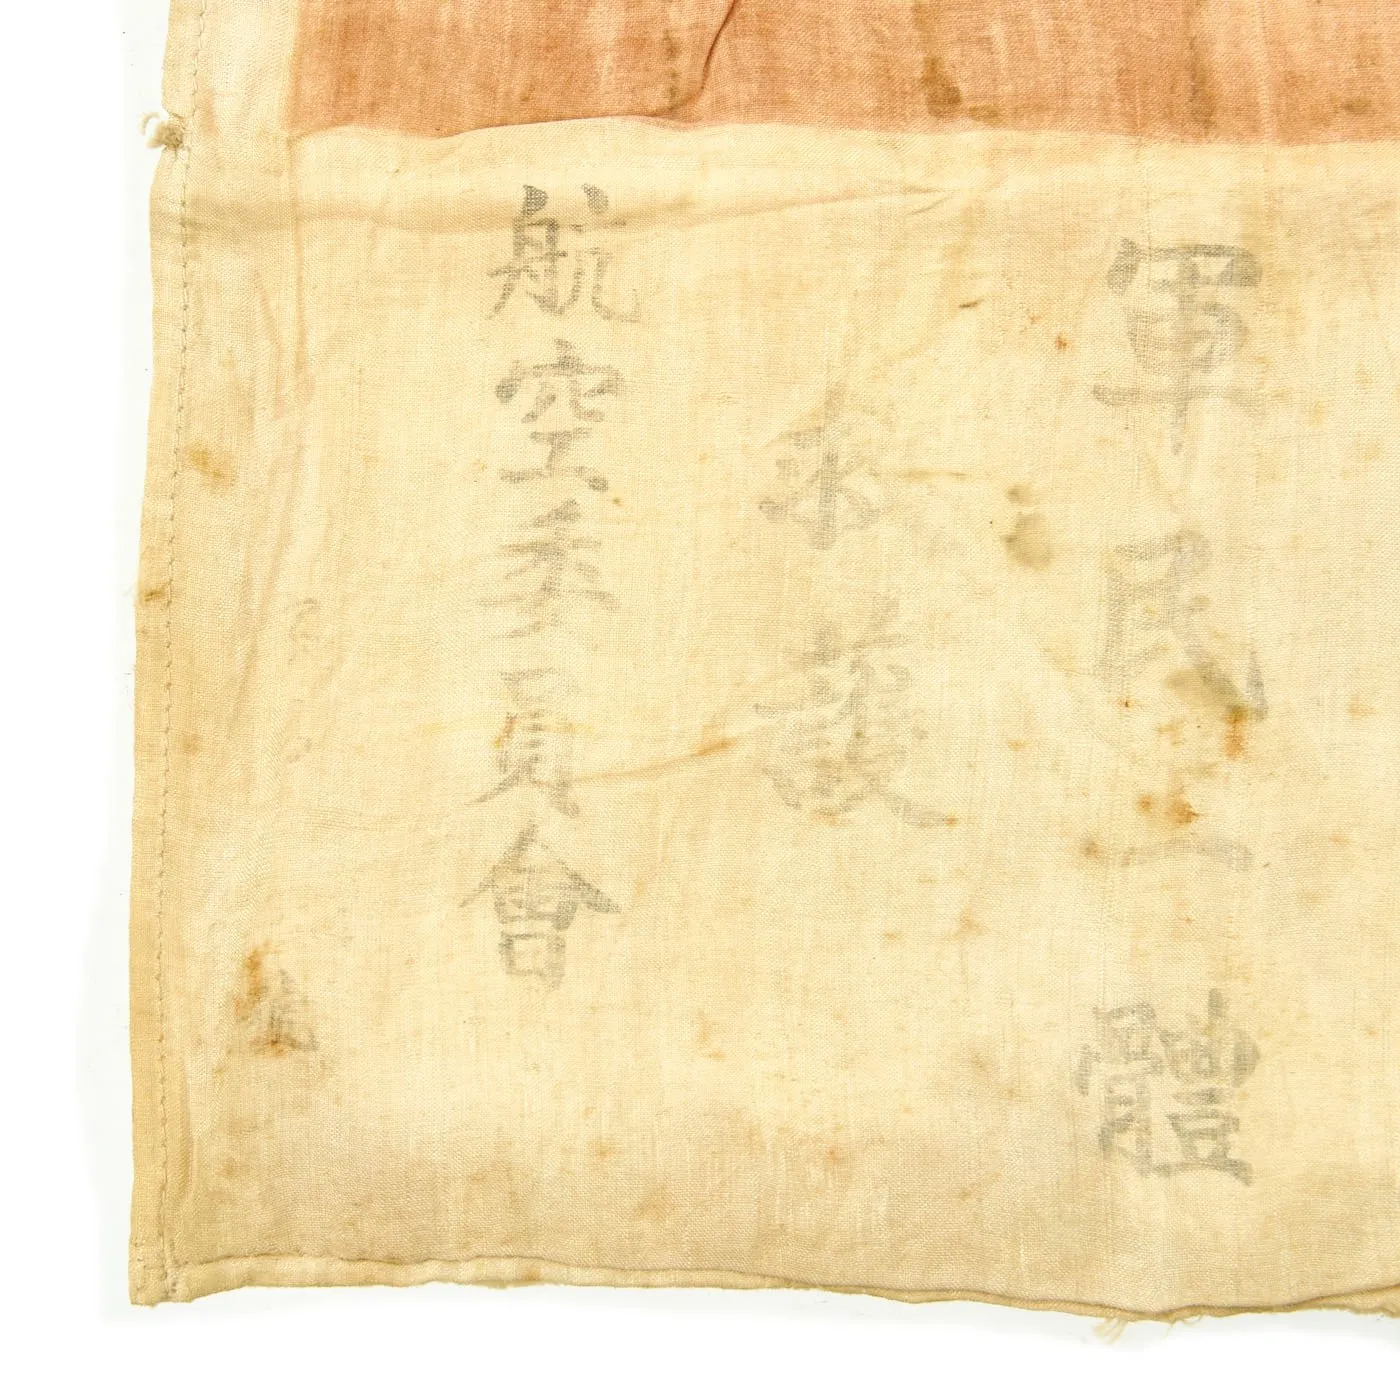 軍民一體
救護
航空委員會